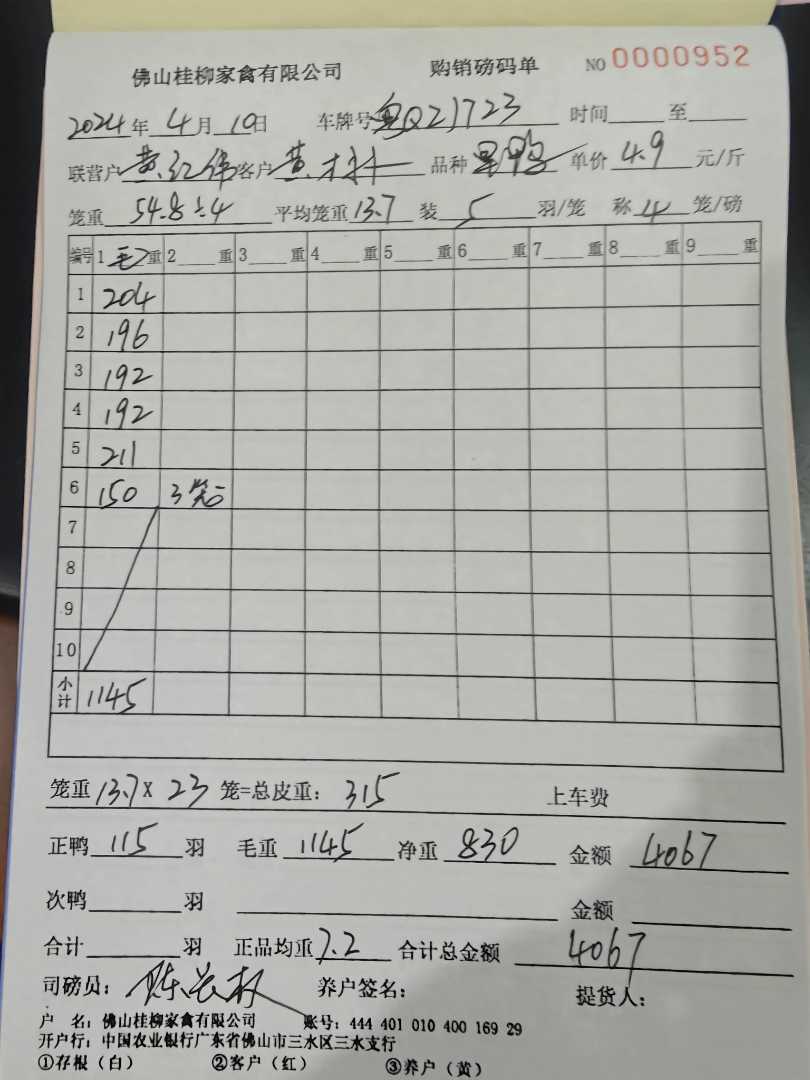 佛山桂柳家禽有限公司 购销磅码单 NO 0000952
2024年4月10日 车牌号粤Q21723 时间 至
联营户黄红伟客户黄 品种黑鸭 单价4.9元/斤
笼重54.8÷4 平均笼重13.7装5羽/笼 称4笼/磅
编号 1毛重 2 重 3 重 4 重 5 重 6 重 7 重 8 重 9 重
1 204
2 196
3 192
4 192
5 211
6 150 3笼
7
8
9
10
小计 1145
笼重13.7X23笼=总皮重:315 上车费
正鸭115羽 毛重1145净重830 金额4067
次鸭 羽 金额
合计 羽 正品均重7.2合计总金额4067
司磅员: 养户签名: 提货人:
户 名:佛山桂柳家禽有限公司 账号:444 401 010 400 169 29
开户行:中国农业银行广东省佛山市三水区三水支行
①存根(白) ②客户(红) ③养户(黄)